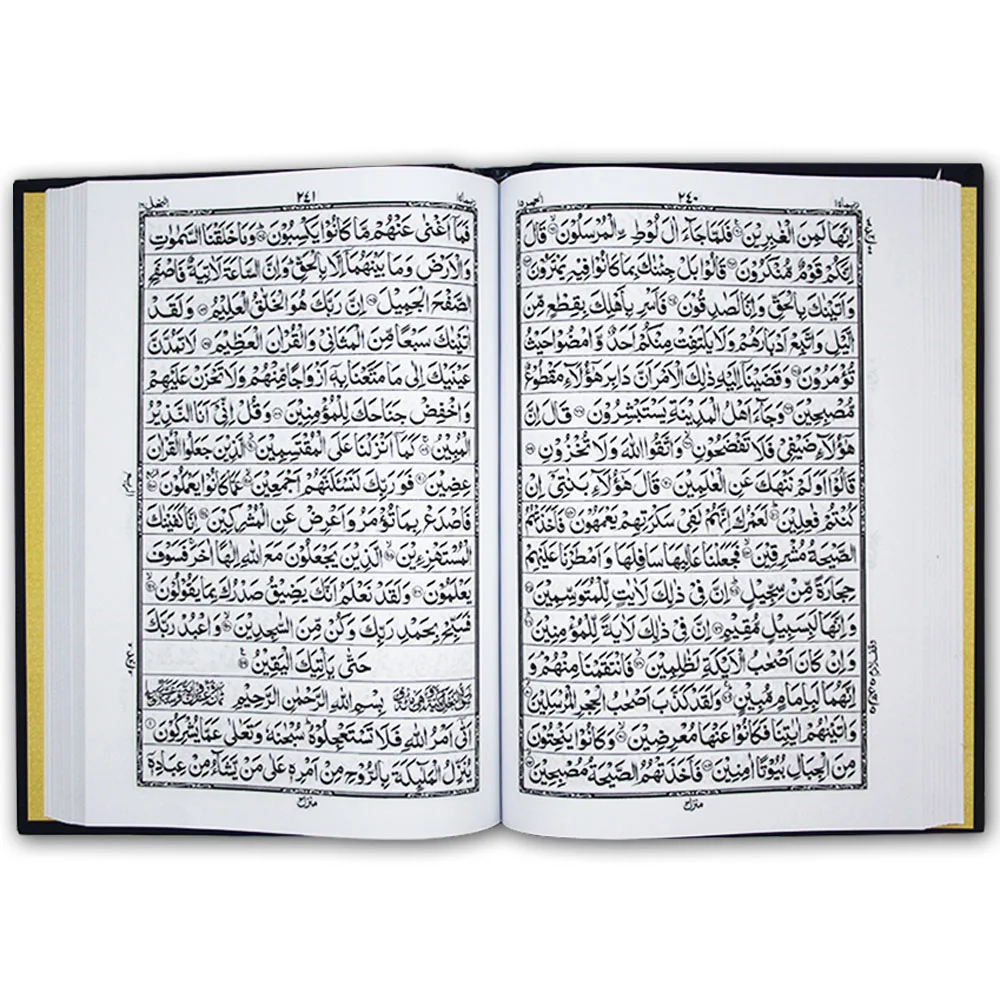 ٢٤٠
اِنَّهَا لَمِنَ الْغٰبِرِيْنَ فَلَمَّا جَآءَ اٰلَ لُوْطِ ۣالْمُرْسَلُوْنَ قَالَ
اِنَّكُمْ قَوْمٌ مُّنْكَرُوْنَ قَالُوْا بَلْ جِئْنٰكَ بِمَا كَانُوْا فِيْهِ يَمْتَرُوْنَ
وَاَتَيْنٰكَ بِالْحَقِّ وَاِنَّا لَصٰدِقُوْنَ فَاَسْرِ بِاَهْلِكَ بِقِطْعٍ مِّنَ
الَّيْلِ وَاتَّبِعْ اَدْبَارَهُمْ وَلَا يَلْتَفِتْ مِنْكُمْ اَحَدٌ وَّامْضُوْا حَيْثُ
تُؤْمَرُوْنَ وَقَضَيْنَآ اِلَيْهِ ذٰلِكَ الْاَمْرَ اَنَّ دَابِرَ هٰٓؤُلَآءِ مَقْطُوْعٌ
مُّصْبِحِيْنَ وَجَآءَ اَهْلُ الْمَدِيْنَةِ يَسْتَبْشِرُوْنَ قَالَ اِنَّ
هٰٓؤُلَآءِ ضَيْفِيْ فَلَا تَفْضَحُوْنِ وَاتَّقُوا اللّٰهَ وَلَا تُخْزُوْنِ
قَالُوْٓا اَوَلَمْ نَنْهَكَ عَنِ الْعٰلَمِيْنَ قَالَ هٰٓؤُلَآءِ بَنٰتِيْٓ اِنْ
كُنْتُمْ فٰعِلِيْنَ لَعَمْرُكَ اِنَّهُمْ لَفِيْ سَكْرَتِهِمْ يَعْمَهُوْنَ فَاَخَذَتْهُمُ
الصَّيْحَةُ مُشْرِقِيْنَ فَجَعَلْنَا عَالِيَهَا سَافِلَهَا وَاَمْطَرْنَا عَلَيْهِمْ
حِجَارَةً مِّنْ سِجِّيْلٍ اِنَّ فِيْ ذٰلِكَ لَاٰيٰتٍ لِّلْمُتَوَسِّمِيْنَ
وَاِنَّهَا لَبِسَبِيْلٍ مُّقِيْمٍ اِنَّ فِيْ ذٰلِكَ لَاٰيَةً لِّلْمُؤْمِنِيْنَ
وَاِنْ كَانَ اَصْحٰبُ الْاَيْكَةِ لَظٰلِمِيْنَ فَانْتَقَمْنَا مِنْهُمْ وَ
اِنَّهُمَا لَبِاِمَامٍ مُّبِيْنٍ وَلَقَدْ كَذَّبَ اَصْحٰبُ الْحِجْرِ الْمُرْسَلِيْنَ
وَاٰتَيْنٰهُمْ اٰيٰتِنَا فَكَانُوْا عَنْهَا مُعْرِضِيْنَ وَكَانُوْا يَنْحِتُوْنَ
مِنَ الْجِبَالِ بُيُوْتًا اٰمِنِيْنَ فَاَخَذَتْهُمُ الصَّيْحَةُ مُصْبِحِيْنَ
منزل٣
٢٤١
فَمَآ اَغْنٰى عَنْهُمْ مَّا كَانُوْا يَكْسِبُوْنَ وَمَا خَلَقْنَا السَّمٰوٰتِ
وَالْاَرْضَ وَمَا بَيْنَهُمَآ اِلَّا بِالْحَقِّ وَاِنَّ السَّاعَةَ لَاٰتِيَةٌ فَاصْفَحِ
الصَّفْحَ الْجَمِيْلَ اِنَّ رَبَّكَ هُوَ الْخَلّٰقُ الْعَلِيْمُ وَلَقَدْ
اٰتَيْنٰكَ سَبْعًا مِّنَ الْمَثَانِيْ وَالْقُرْاٰنَ الْعَظِيْمَ لَا تَمُدَّنَّ
عَيْنَيْكَ اِلٰى مَا مَتَّعْنَا بِهٖٓ اَزْوَاجًا مِّنْهُمْ وَلَا تَحْزَنْ عَلَيْهِمْ
وَاخْفِضْ جَنَاحَكَ لِلْمُؤْمِنِيْنَ وَقُلْ اِنِّيْٓ اَنَا النَّذِيْرُ
الْمُبِيْنُ كَمَآ اَنْزَلْنَا عَلَى الْمُقْتَسِمِيْنَ الَّذِيْنَ جَعَلُوا الْقُرْاٰنَ
عِضِيْنَ فَوَرَبِّكَ لَنَسْـَٔلَنَّهُمْ اَجْمَعِيْنَ عَمَّا كَانُوْا يَعْمَلُوْنَ
فَاصْدَعْ بِمَا تُؤْمَرُ وَاَعْرِضْ عَنِ الْمُشْرِكِيْنَ اِنَّا كَفَيْنٰكَ
الْمُسْتَهْزِءِيْنَ الَّذِيْنَ يَجْعَلُوْنَ مَعَ اللّٰهِ اِلٰهًا اٰخَرَ فَسَوْفَ
يَعْلَمُوْنَ وَلَقَدْ نَعْلَمُ اَنَّكَ يَضِيْقُ صَدْرُكَ بِمَا يَقُوْلُوْنَ
فَسَبِّحْ بِحَمْدِ رَبِّكَ وَكُنْ مِّنَ السّٰجِدِيْنَ وَاعْبُدْ رَبَّكَ
حَتّٰى يَاْتِيَكَ الْيَقِيْنُ
بِسْمِ اللّٰهِ الرَّحْمٰنِ الرَّحِيْمِ
اَتٰٓى اَمْرُ اللّٰهِ فَلَا تَسْتَعْجِلُوْهُ سُبْحٰنَهٗ وَتَعٰلٰى عَمَّا يُشْرِكُوْنَ
يُنَزِّلُ الْمَلٰٓئِكَةَ بِالرُّوْحِ مِنْ اَمْرِهٖ عَلٰى مَنْ يَّشَآءُ مِنْ عِبَادِهٖٓ
منزل٣